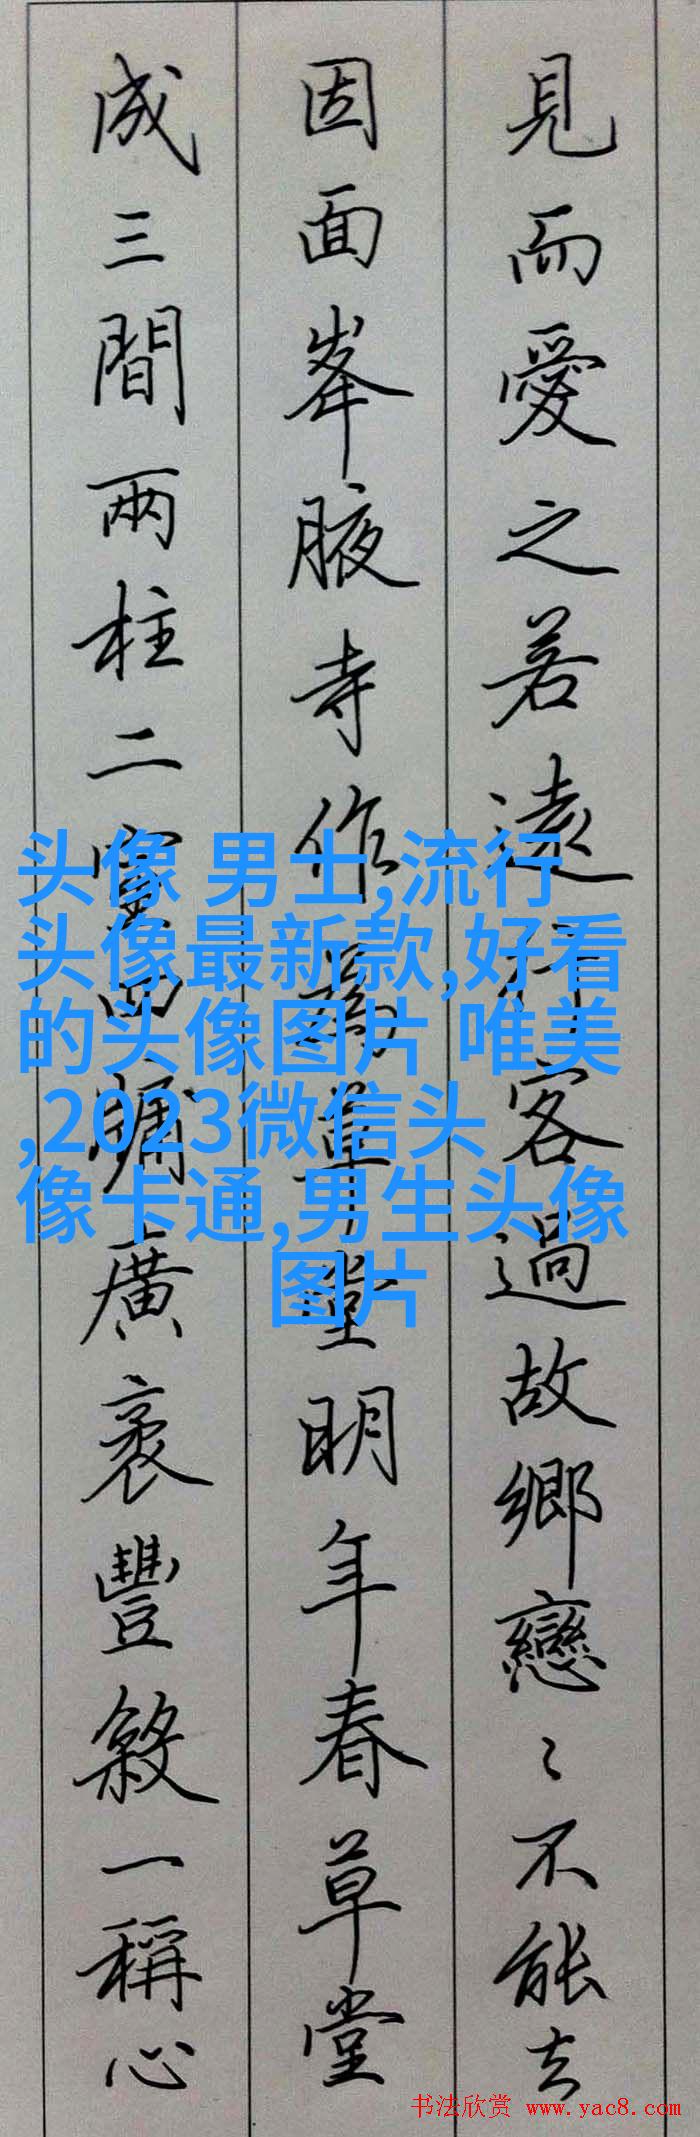 見而愛之若遠行客過故鄉戀〻不能去
因面峯腋寺作為草堂明年春草堂
成三間兩柱二室四牖廣袤豐殺一稱心
头像 男士,流行
头像最新款,好看
的头像图片 唯美
,2023微信头
像卡通,男生头像
图片
书法欣赏 www.yac8.com